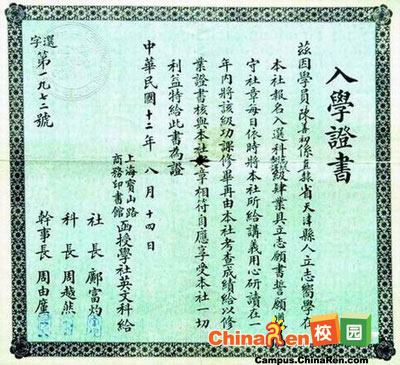 入學證書
茲因學員陳善初係直隸省天津縣人立志嚮學在
本社報名入選科級肄業具立志願書誓願
守社章每日依時將本社所給講義用心研讀在一
年內將該級功課修畢再由本社考查成績給以修
業證書核與本社章相符自應享受本社一切
利益特給此書為證
中華民國十二年八月十四日
上海寶山路
商務印書館
函授學社英文科給
社長 鄺富灼
科長 周越然
幹事長 周由廑
選字第一九七二號
ChinaRen校园
Campus.ChinaRen.com